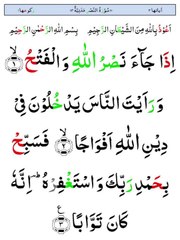 اٰیاتھا ۳ سُوْرَةُ النَّصْرِ مَدَنِیَّةٌ رکوعھا ۱
اَعُوْذُ بِاللّٰهِ مِنَ الشَّيْطَانِ الرَّجِيْمِ بِسْمِ اللّٰهِ الرَّحْمٰنِ الرَّحِيْمِ
اِذَا جَآءَ نَصْرُ اللّٰهِ وَالْفَتْحُ ۙ﴿۱﴾
وَ رَاَيْتَ النَّاسَ يَدْخُلُوْنَ فِيْ
دِيْنِ اللّٰهِ اَفْوَاجًا ۙ﴿۲﴾ فَسَبِّحْ
بِحَمْدِ رَبِّكَ وَاسْتَغْفِرْهُ ؔ اِنَّهٗ
كَانَ تَوَّابًا ﴿۳﴾ ع